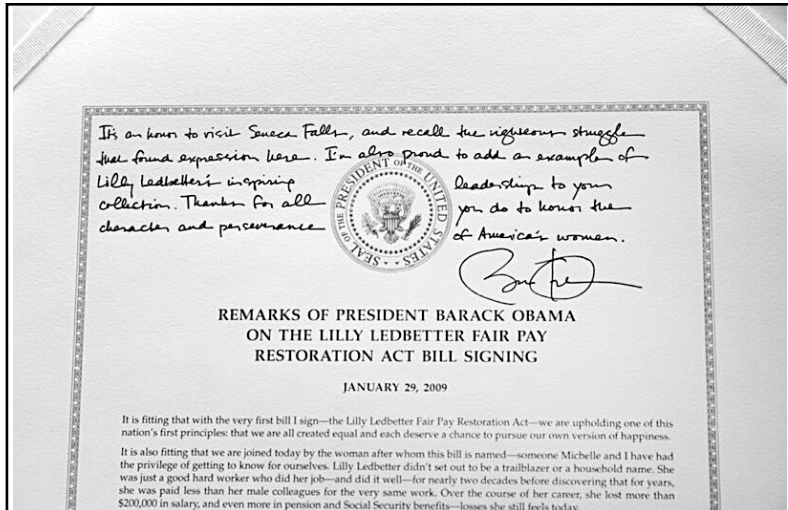 It's an honor to visit Seneca Falls, and recall the righteous struggle
that found expression here. I'm also proud to add an example of
Lilly Ledbetter's inspiring leadership to your
collection. Thanks for all you do to honor the
character and perseverance of America's women.
SEAL OF THE PRESIDENT OF THE UNITED STATES
REMARKS OF PRESIDENT BARACK OBAMA
ON THE LILLY LEDBETTER FAIR PAY
RESTORATION ACT BILL SIGNING
JANUARY 29, 2009
It is fitting that with the very first bill I sign—the Lilly Ledbetter Fair Pay Restoration Act—we are upholding one of this
nation's first principles: that we are all created equal and each deserve a chance to pursue our own version of happiness.
It is also fitting that we are joined today by the woman after whom this bill is named—someone Michelle and I have had
the privilege of getting to know for ourselves. Lilly Ledbetter didn't set out to be a trailblazer or a household name. She
was just a good hard worker who did her job—and did it well—for nearly two decades before discovering that for years,
she was paid less than her male colleagues for the very same work. Over the course of her career, she lost more than
$200,000 in salary, and even more in pension and Social Security benefits—losses she still feels today.